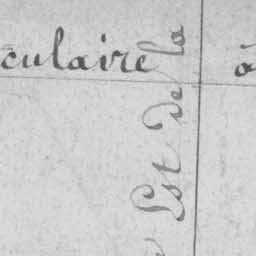 culaire à
Est de la